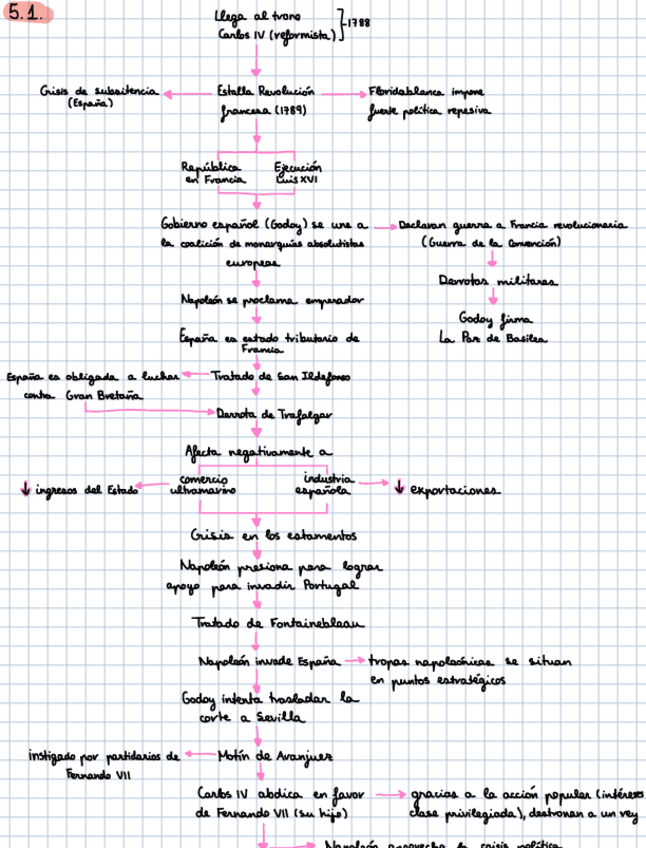 5.1.
Llega al trono
Carlos IV (reformista)
1788
Crisis de subsistencia
(España)
Estalla Revolución
francesa (1789)
Floridablanca impone
fuerte política represiva
República
en Francia
Ejecución
Luis XVI
Gobierno español (Godoy) se une a
la coalición de monarquías absolutistas
europeas
Declaran guerra a Francia revolucionaria
(Guerra de la Convención)
Derrotas militares
Godoy firma
La Paz de Basilea
Napoleón se proclama emperador
España es estado tributario de
Francia
Tratado de San Ildefonso
España es obligada a luchar
contra Gran Bretaña
Derrota de Trafalgar
Afecta negativamente a
comercio
ultramarino
industria
española
↓ ingresos del Estado
↓ exportaciones
Crisis en los estamentos
Napoleón presiona para lograr
apoyo para invadir Portugal
Tratado de Fontainebleau
Napoleón invade España
tropas napoleónicas se situan
en puntos estratégicos
Godoy intenta trasladar la
corte a Sevilla
Motín de Aranjuez
instigado por partidarios de
Fernando VII
Carlos IV abdica en favor
de Fernando VII (su hijo)
gracias a la acción popular (intereses
clase privilegiada), destronan a un rey
Napoleón aprovecha la crisis política